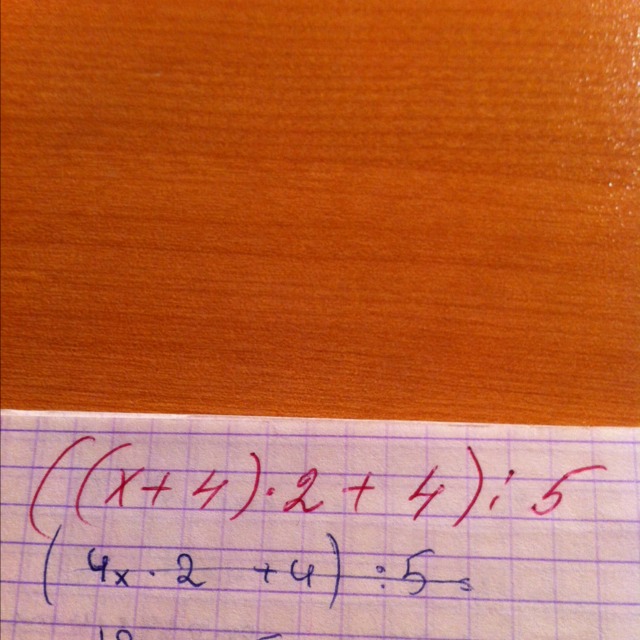 ((x+4)·2+4):5
(4x·2+4):5=